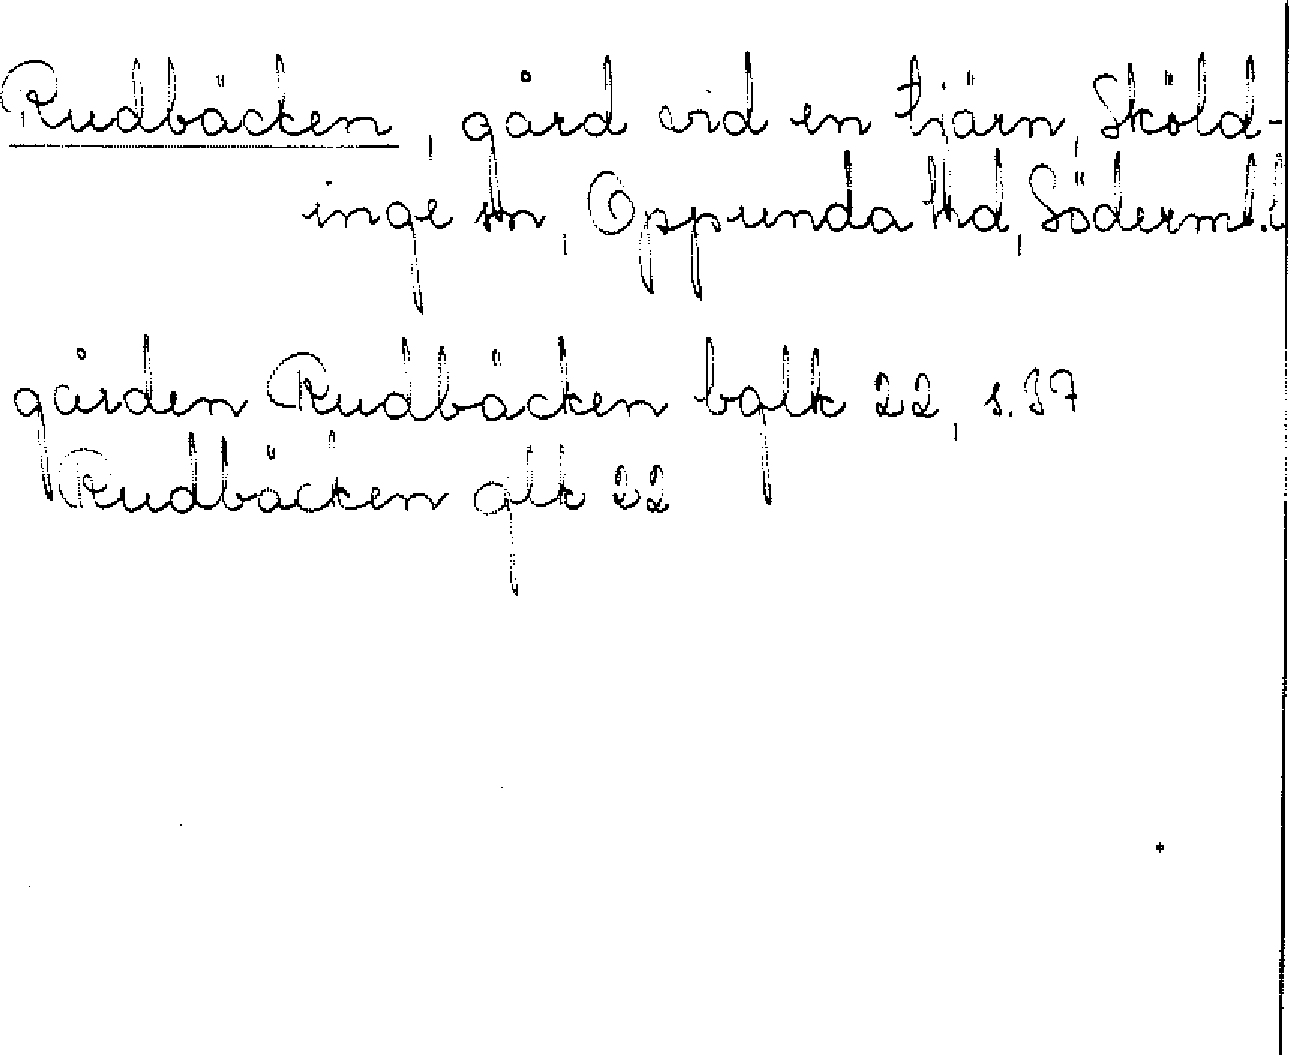 Rudbäcken, gård vid en tjärn, Sköld-
inge sn, Oppunda hd, Söderml.
gården Rudbäcken bglk 22, s. 37
Rudbäcken glk 22